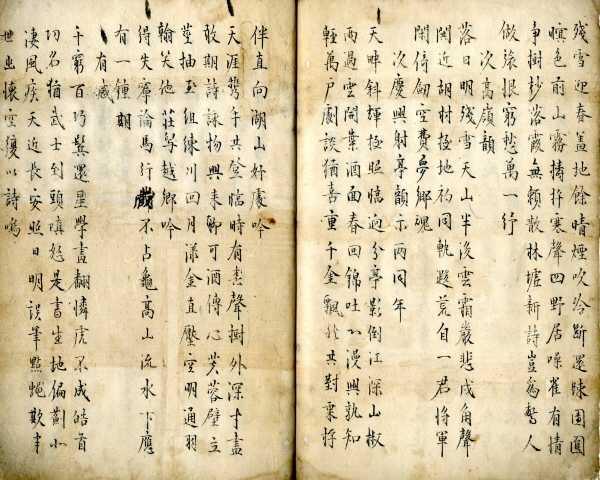 殘雪迎春蓋地餘晴煙吹冷斷還踈園圓
暝色前山霧擣拃寒聲四野居噪雀有情
爭掛抄落霞無賴散林墟新詩豈為驚人
做旅恨窮愁萬一紓
次高嶺韻
落日明殘雪天山半沒雲霜嚴悲戍角聲
閑近胡村極地初同軌遐荒自一君將軍
閑倚劒空費夢鄉魂
次慶興射亭韻示兩同年
天畔斜輝極照臨迥分亭影倒江深山椒
雨過雲開葉酒面春回錦吐心漫興孰知
輕萬戶劇談猶喜重千金飄然共對
伴直向湖山好處吟
天涯驚午共登臨時有書聲樹外深才盡
敢期詩詠物興來聊可酒傳心芙蓉壁立
莖抽玉組練川回月漾金直壓空明通羽
翰笑他莊舃越鄉吟
得失寧論馬行藏不占龜高山流水下應
有一鍾期
有感
千窮百巧鬂還星學畫翻憐虎不成皓首
功名猶武士到頭嗔怒是書生地偏薊小
淒風疾天近長安照日明誤筆點蠅欺半
世幽懷空復以詩鳴